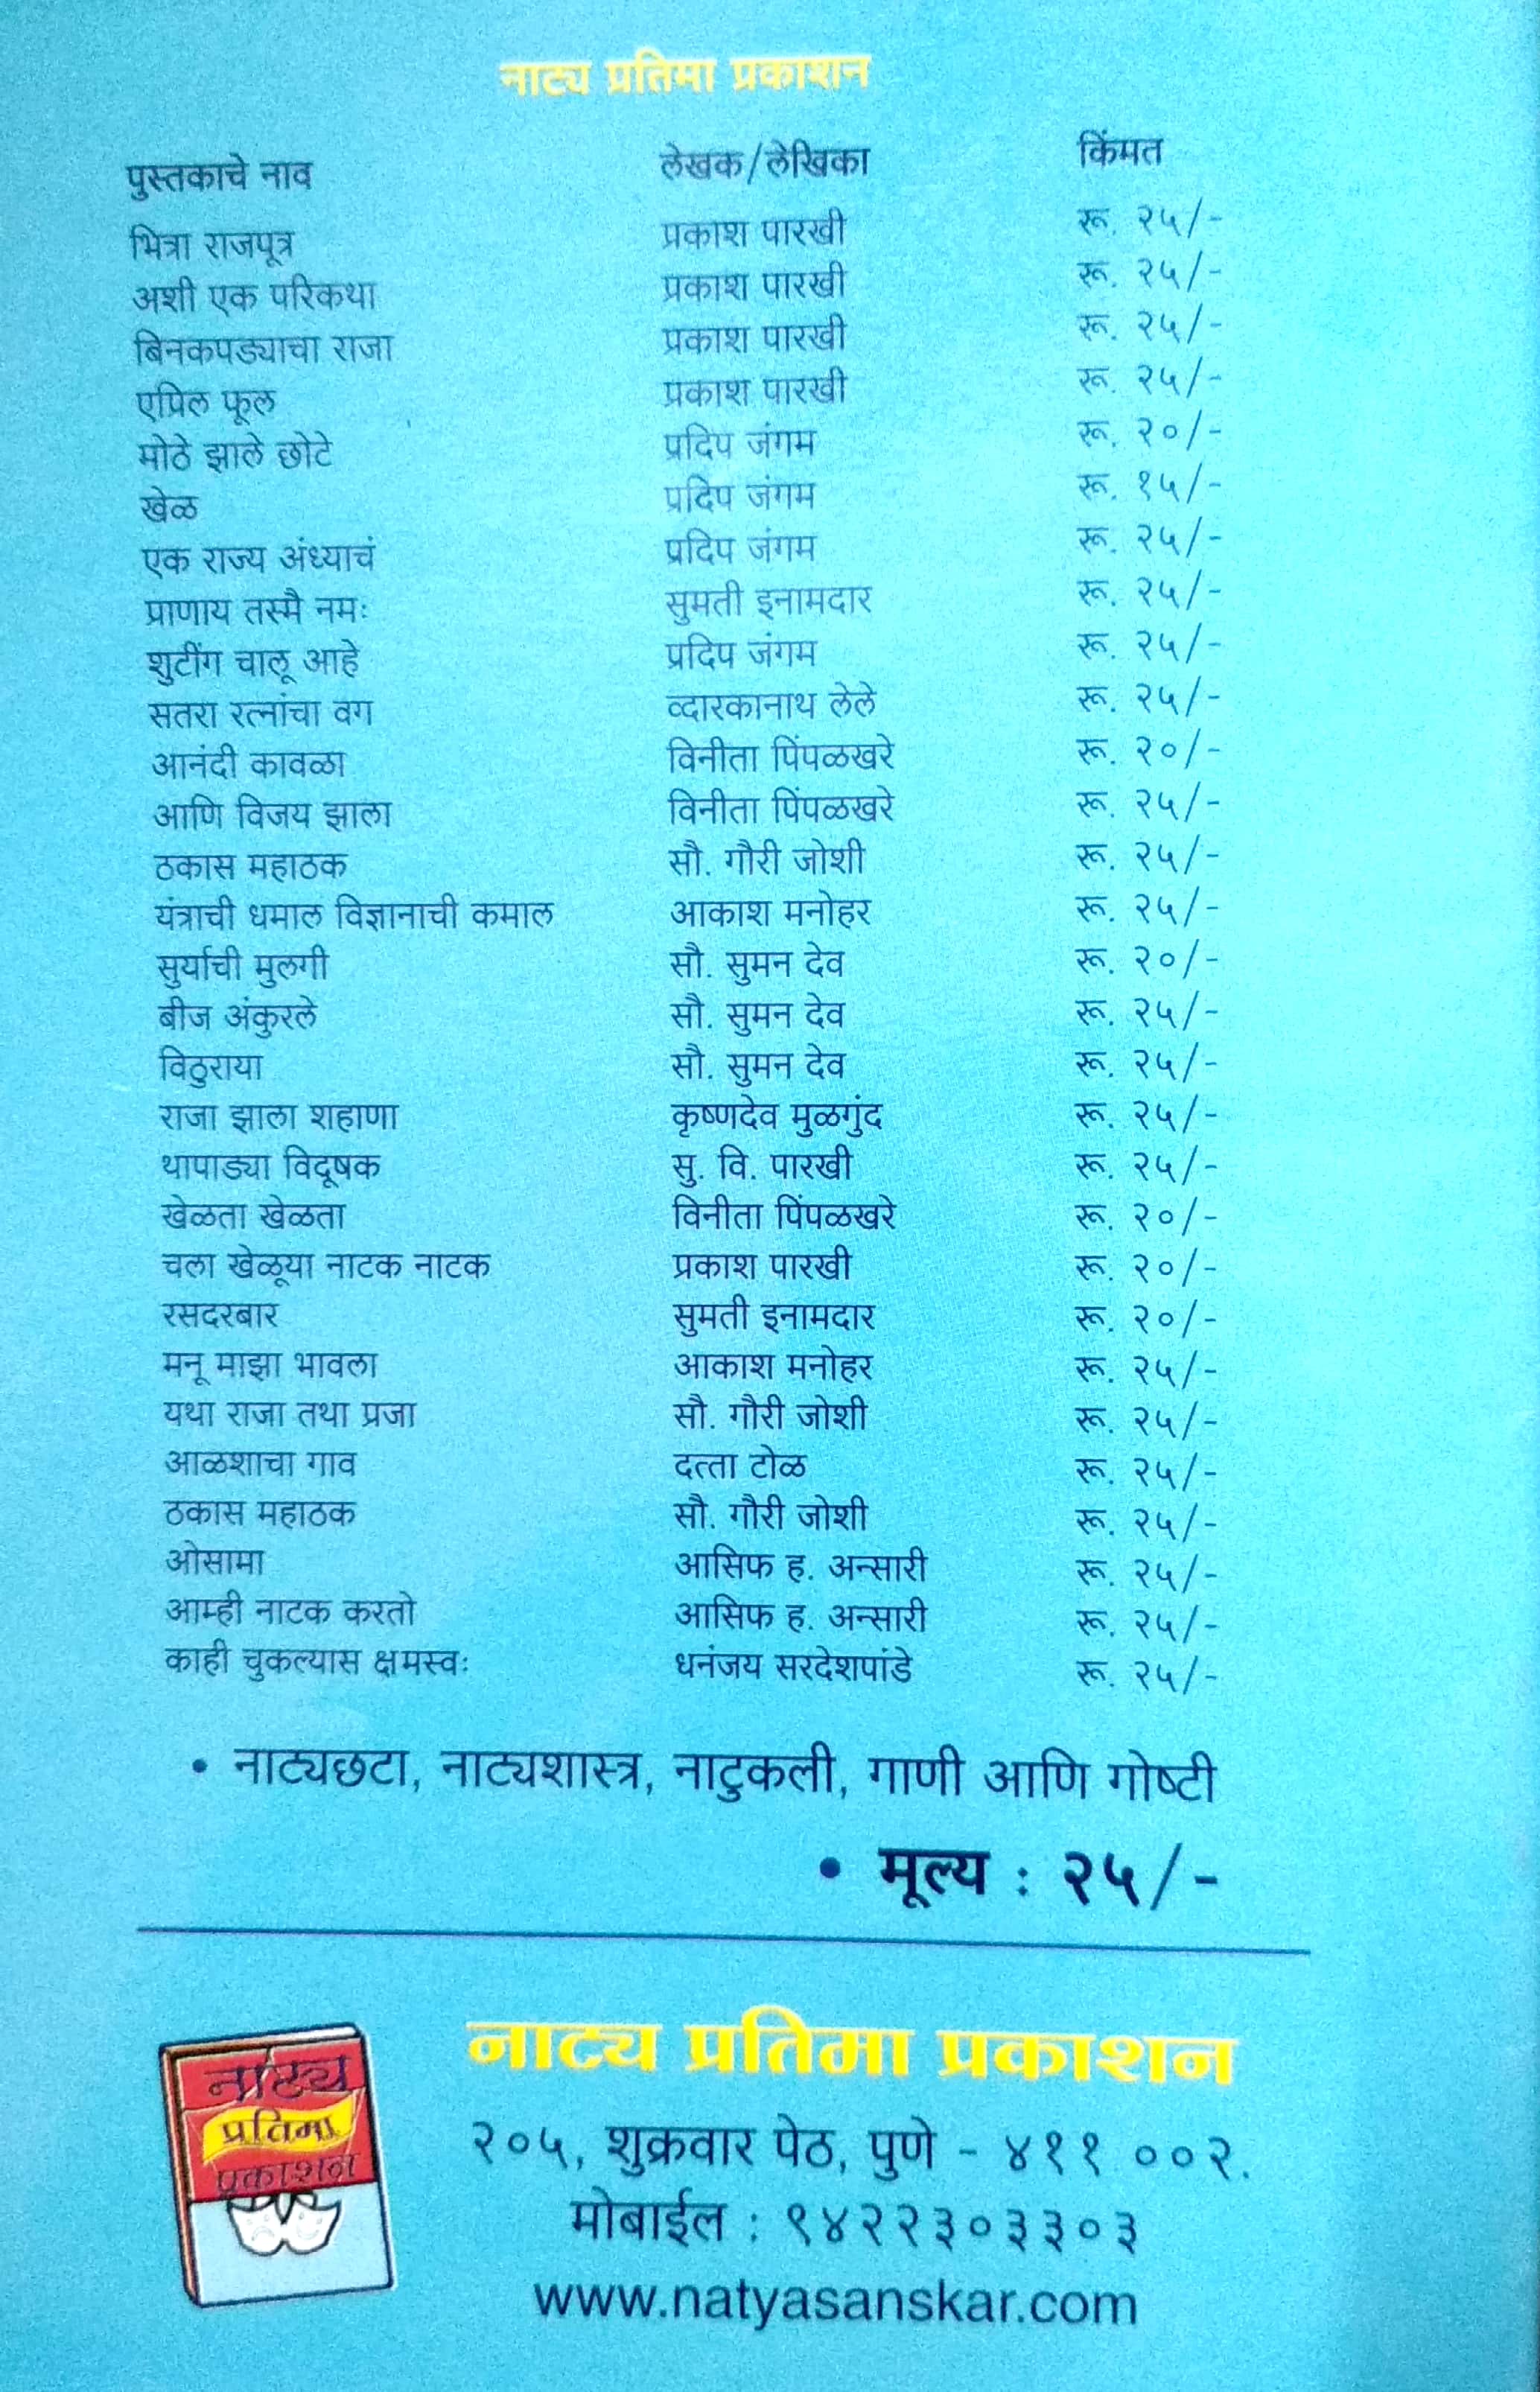 नाट्य प्रतिमा प्रकाशन
पुस्तकाचे नाव लेखक/लेखिका किंमत
भित्रा राजपूत्र प्रकाश पारखी रू. २५/-
अशी एक परिकथा प्रकाश पारखी रू. २५/-
बिनकपड्याचा राजा प्रकाश पारखी रू. २५/-
एप्रिल फूल प्रकाश पारखी रू. २५/-
मोठे झाले छोटे प्रदिप जंगम रू. २०/-
खेळ प्रदिप जंगम रू. १५/-
एक राज्य अंध्याचं प्रदिप जंगम रू. २५/-
प्राणाय तस्मै नमः सुमती इनामदार रू. २५/-
शुटींग चालू आहे प्रदिप जंगम रू. २५/-
सतरा रत्नांचा वग व्दारकानाथ लेले रू. २५/-
आनंदी कावळा विनीता पिंपळखरे रू. २०/-
आणि विजय झाला विनीता पिंपळखरे रू. २५/-
ठकास महाठक सौ. गौरी जोशी रू. २५/-
यंत्राची धमाल विज्ञानाची कमाल आकाश मनोहर रू. २५/-
सुर्याची मुलगी सौ. सुमन देव रू. २०/-
बीज अंकुरले सौ. सुमन देव रू. २५/-
विठुराया सौ. सुमन देव रू. २५/-
राजा झाला शहाणा कृष्णदेव मुळगुंद रू. २५/-
थापाड्या विदूषक सु. वि. पारखी रू. २५/-
खेळता खेळता विनीता पिंपळखरे रू. २०/-
चला खेळूया नाटक नाटक प्रकाश पारखी रू. २०/-
रसदरबार सुमती इनामदार रू. २०/-
मनू माझा भावला आकाश मनोहर रू. २५/-
यथा राजा तथा प्रजा सौ. गौरी जोशी रू. २५/-
आळशाचा गाव दत्ता टोळ रू. २५/-
ठकास महाठक सौ. गौरी जोशी रू. २५/-
ओसामा आसिफ ह. अन्सारी रू. २५/-
आम्ही नाटक करतो आसिफ ह. अन्सारी रू. २५/-
काही चुकल्यास क्षमस्वः धनंजय सरदेशपांडे रू. २५/-
• नाट्यछटा, नाट्यशास्त्र, नाटुकली, गाणी आणि गोष्टी
• मूल्य : २५/-
नाट्य
प्रतिमा
प्रकाशन
नाट्य प्रतिमा प्रकाशन
२०५, शुक्रवार पेठ, पुणे - ४११ ००२.
मोबाईल : ९४२२३०३३०३
www.natyasanskar.com